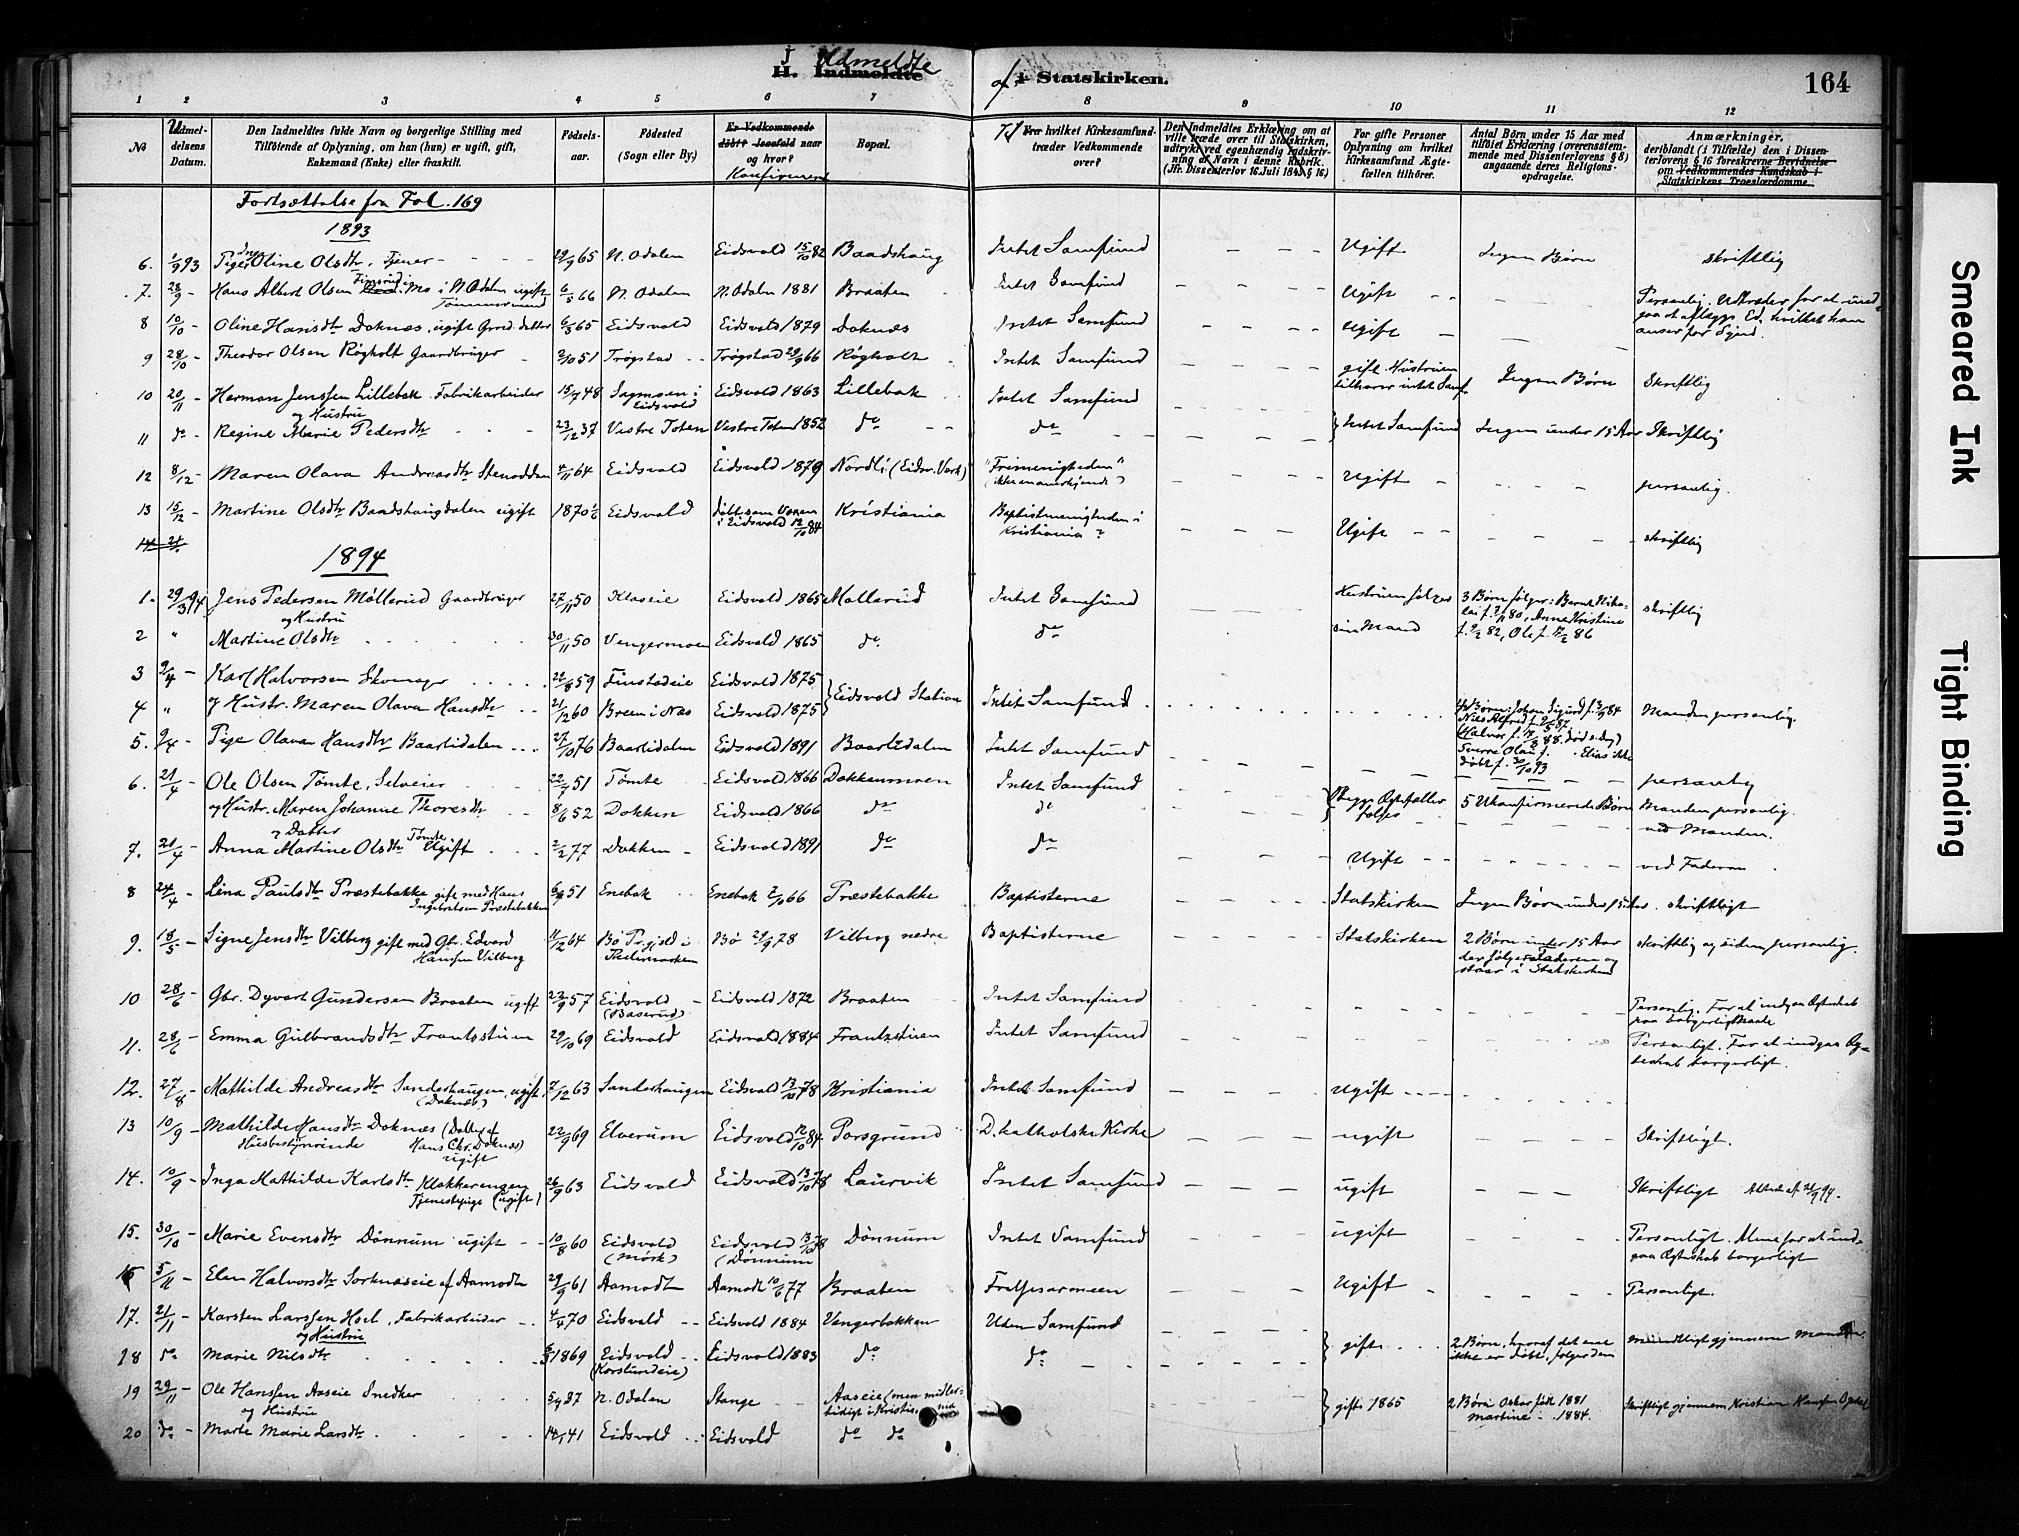 J. Udmeldte af Statskirken.
H. Indmeldte i Statskirken.
164
1 2 3 4 5 6 7 8 9 10 11 12
No
Udmeldelsens Datum.
Den Indmeldtes fulde Navn og borgerlige Stilling med Tilføiende af Oplysning, om han (hun) er ugift, gift, Enkemand (Enke) eller fraskilt.
Fødselsaar.
Fødested (Sogn eller By.)
Er Vedkommende døbt? Isaafald naar og hvor? Konfirmeret
Bopæl.
Til hvilket Kirkesamfund træder Vedkommende over?
Den Indmeldtes Erklæring om at ville træde over til Statskirken, udtrykt ved egenhændig Indskrivning af Navn i denne Rubrik. (Jfr. Dissenterlov 16. Juli 1845 § 16)
For gifte Personer Oplysning om hvilket Kirkesamfund Ægtefællen tilhører.
Antal Børn under 15 Aar med tilføiet Erklæring (overensstemmende med Dissenterlovens § 8) angaaende deres Religionsopdragelse.
Anmærkninger, deriblandt (i Tilfælde) den i Dissenterlovens § 16 foreskrevne Bevidnelse om Vedkommendes Kundskab i Statskirkens Troeslærdomme.
Fortsættelse fra Fol. 169
1893
6. 1/9 93 Pige Oline Olsdtr. Tjener 65 N. Odalen Eidsvold 15/10 82 Baadshaug Intet Samfund Ugift Ingen Børn skriftlig
7. 28/9 Hans Albert Olsen Mo i N. Odalen ugift Tømmermand 66 N. Odalen N. Odalen 1881 Braaten Intet Samfund Ugift Personlig. Udtræder for at undgaa at aflægge Ed, hvilket han anser for Synd.
8 10/10 Oline Hansdtr Doknæs, ugift Grd. datter 65 Eidsvold Eidsvold 1879 Doknæs Intet Samfund Ugift
9 28/10 Theodor Olsen Røgholt Gaardbruger 51 Trøgstad Trøgstad 66 Røgholt Intet Samfund gift. Hustruen tilhører intet Samf. Ingen Børn Skriftlig
10 20/11 Herman Jenssen Lillebak Fabrikarbeider og Hustru 48 Eidsvold Eidsvold 1863 Lillebak Intet Samfund
11 do Regine Marie Pedersdtr 23/12 37 Vestre Toten Vestre Toten 1852 do do Intet Samfund Ingen under 15 Aar Skriftlig
12 8/12 Maren Olava Andreasdtr Stensodden 64 Eidsvold Eidsvold 1879 Nordli (Eidsv. Værk) "Frimenigheden" Ugift personlig.
13 15/12 Martine Olsdtr Baadshaugdalen ugift 1870 Eidsvold døbt som Voxen i Eidsvold 84 Kristiania Baptistmenigheden i Kristiania? Ugift skriftlig
14 21
1894
1. 29/3 94 Jens Pedersen Møllerud Gaardbruger og Hustru 27/11 50 Eidsvold 1865 Møllerud Intet Samfund Hustruen følger sin Mand 3 Børn følger: Bernt Nikolai f. 80, Anne Kristine f. 82, Ole f. 86 skriftlig
2 " Martine Olsdtr 30/11 50 Vengermoen Eidsvold 1865 do. do
3 9/4 Karl Halvorsen Skomager 22/8 59 Finstadeie Eidsvold 1875 Eidsvold Station Intet Samfund
4 " og Hustr. Maren Olava Hansdtr 21/12 60 Breen i Næs Eidsvold 1875 4 Børn: Johan Sigurd f. 84 Nils Alfred f. 87 (Halvor f. 88, død s. Dag) Sverre Olai f. Elias ikke døbt f. 30/10 93 Manden personlig.
5. 9/4 Pige Olava Hansdtr Baarlidalen 27/10 76 Baarlidalen Eidsvold 1891 Baarlidalen Intet Samfund
6. 21/4 Ole Olsen Tømte, Selveier 22/7 51 Tømte Eidsvold 1866 Dokkenmoen Intet Samfund personlig
og Hustr. Maren Johanne Thoresdtr 8/6 52 Dokken Eidsvold 1866 do do Begge Ægtefæller følges 5 Ukonfirmerede Børn Manden personlig. ved Manden.
7. 21/4 Anna Martine Olsdtr Tømte Ugift 2/2 77 Dokken Eidsvold 1891 do do Ugift ved Faderen
8 24/4 Lina Paulsdtr Præstebakke gift med Hans Ingebretsen Præstebakken 51 Enebak Enebak 66 Præstebakke Baptisterne Statskirken Ingen Børn under 15 Aar. skriftligt
9. 18/5 Signe Jensdtr Vilberg gift med Gbr. Edvard Hansen Vilberg 11/12 64 Bø Prgjeld i Thelemarken Bø 29/9 78 Vilberg nedre Baptisterne Statskirken 2 Børn under 15 Aar der følger Faderen og staar i Statskirken skriftlig og siden personlig.
10 28/6 Gbr. Dyvart Gundersen Braaten ugift 23/9 57 Eidsvold (Baserud) Eidsvold 1872 Braaten Intet Samfund Personlig. For at indgaa Ægteskab paa borgerlig Maade
11. 28/6 Emma Gulbrandsdtr Frantsstuen 29/10 69 Eidsvold Eidsvold 1884 Frantzstuen Intet Samfund Personligt. For at indgaa Ægteskab borgerligt.
12. 27/8 Mathilde Andreasdtr Sanderhaugen, ugift (Doknæs) 7/12 63 Sanderhaugen Eidsvold 13/10 78 Kristiania Intet Samfund Ugift
13 10/9 Mathilde Hansdtr Doknæs (Datter af Hans Chr. Doknæs) Husbestyrerinde ugift 22/9 69 Elverum Eidsvold 12/10 84 Porsgrund D. katholske Kirke ugift Skriftligt.
14. 10/9 Inga Mathilde Karlsdtr Klokkerengen Tjenestepige (ugift) 26/9 63 Eidsvold Eidsvold 13/10 78 Laurvik Intet Samfund ugift Skriftligt Attest af 21/9 94.
15. 30/10 Marie Evensdtr Dönnum ugift 10/8 60 Eidsvold (Mørk) Eidsvold 13/10 78 (Dönnum Dönnum Intet Samfund ugift Personligt. Alene for at indgaa Ægteskab borgerligt
16 5/11 Elen Halvorsdtr Sorknæseie af Aamodt 29/9 61 Aamodt Aamodt 10/6 77 Braaten Frelsesarmeen Ugift Personligt.
17. 21/11 Karsten Larssen Hoel, Fabrikarbeider og Hustru 4/4 70 Eidsvold Eidsvold 1884 Vengerbakken Uden Samfund
18 do Marie Nilsdtr 1869 Eidsvold (Korslundeie) Eidsvold 1883 do do gift 2 Børn, hvoraf det ene ikke er døbt, følger dem mundtligt gjennem Manden.
19 29/11 Ole Hanssen Aaseie Snedker og Hustru 37 N. Odalen Stange Aaseie (men midlertidigt i Kristia. gift 1865 2 Børn Oskar født 1881 Martine 1884. Skriftligt gjennem Kristian Hanssen
20 do Marte Marie Larsdtr 14/1 41 Eidsvold Eidsvold do do
Smeared Ink
Tight Binding